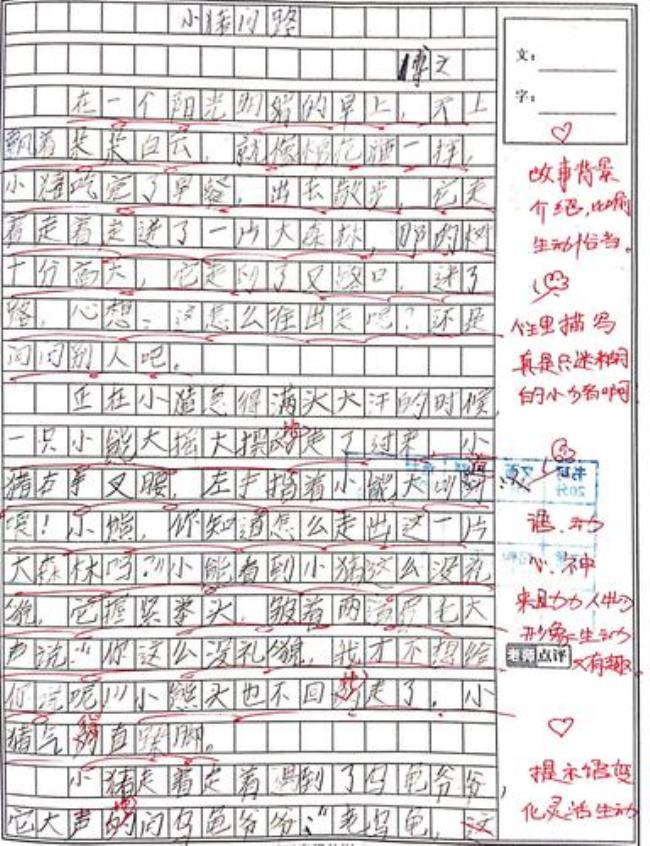 小猪问路
博文
在一个阳光明媚的早上,天上
飘着朵朵白云,就像棉花糖一样,
小猪吃完了早餐,出去散步,它走
着走着走进了一片大森林,那的树
十分高大,它走到了叉路口,迷了
路,心想:这怎么准出走呢?还是
问问别人吧。
正在小猪急得满头大汗的时候,
一只小熊大摇大摆地走了过来,小
猪右手叉腰,左手指着小熊,大叫道
喂!小熊,你知道怎么走出这一片
大森林吗?"小熊看到小猪这么没礼
貌,它握紧拳头,皱着两道眉毛大
声说:"你这么没礼貌,我才不想给
你说呢!"小熊头也不回地走了,小
猪气得直跺脚。
小猪走着走着遇到了乌龟爷爷,
它大声地问乌龟爷爷:"老乌龟,这
文:
字:
故事背景
介绍,比喻
生动恰当。
心里描写
真是只迷糊
的小猪啊
语、动
心、神
来自力人物
形象生动
又有趣
老师点评
提示语变
化灵活生动